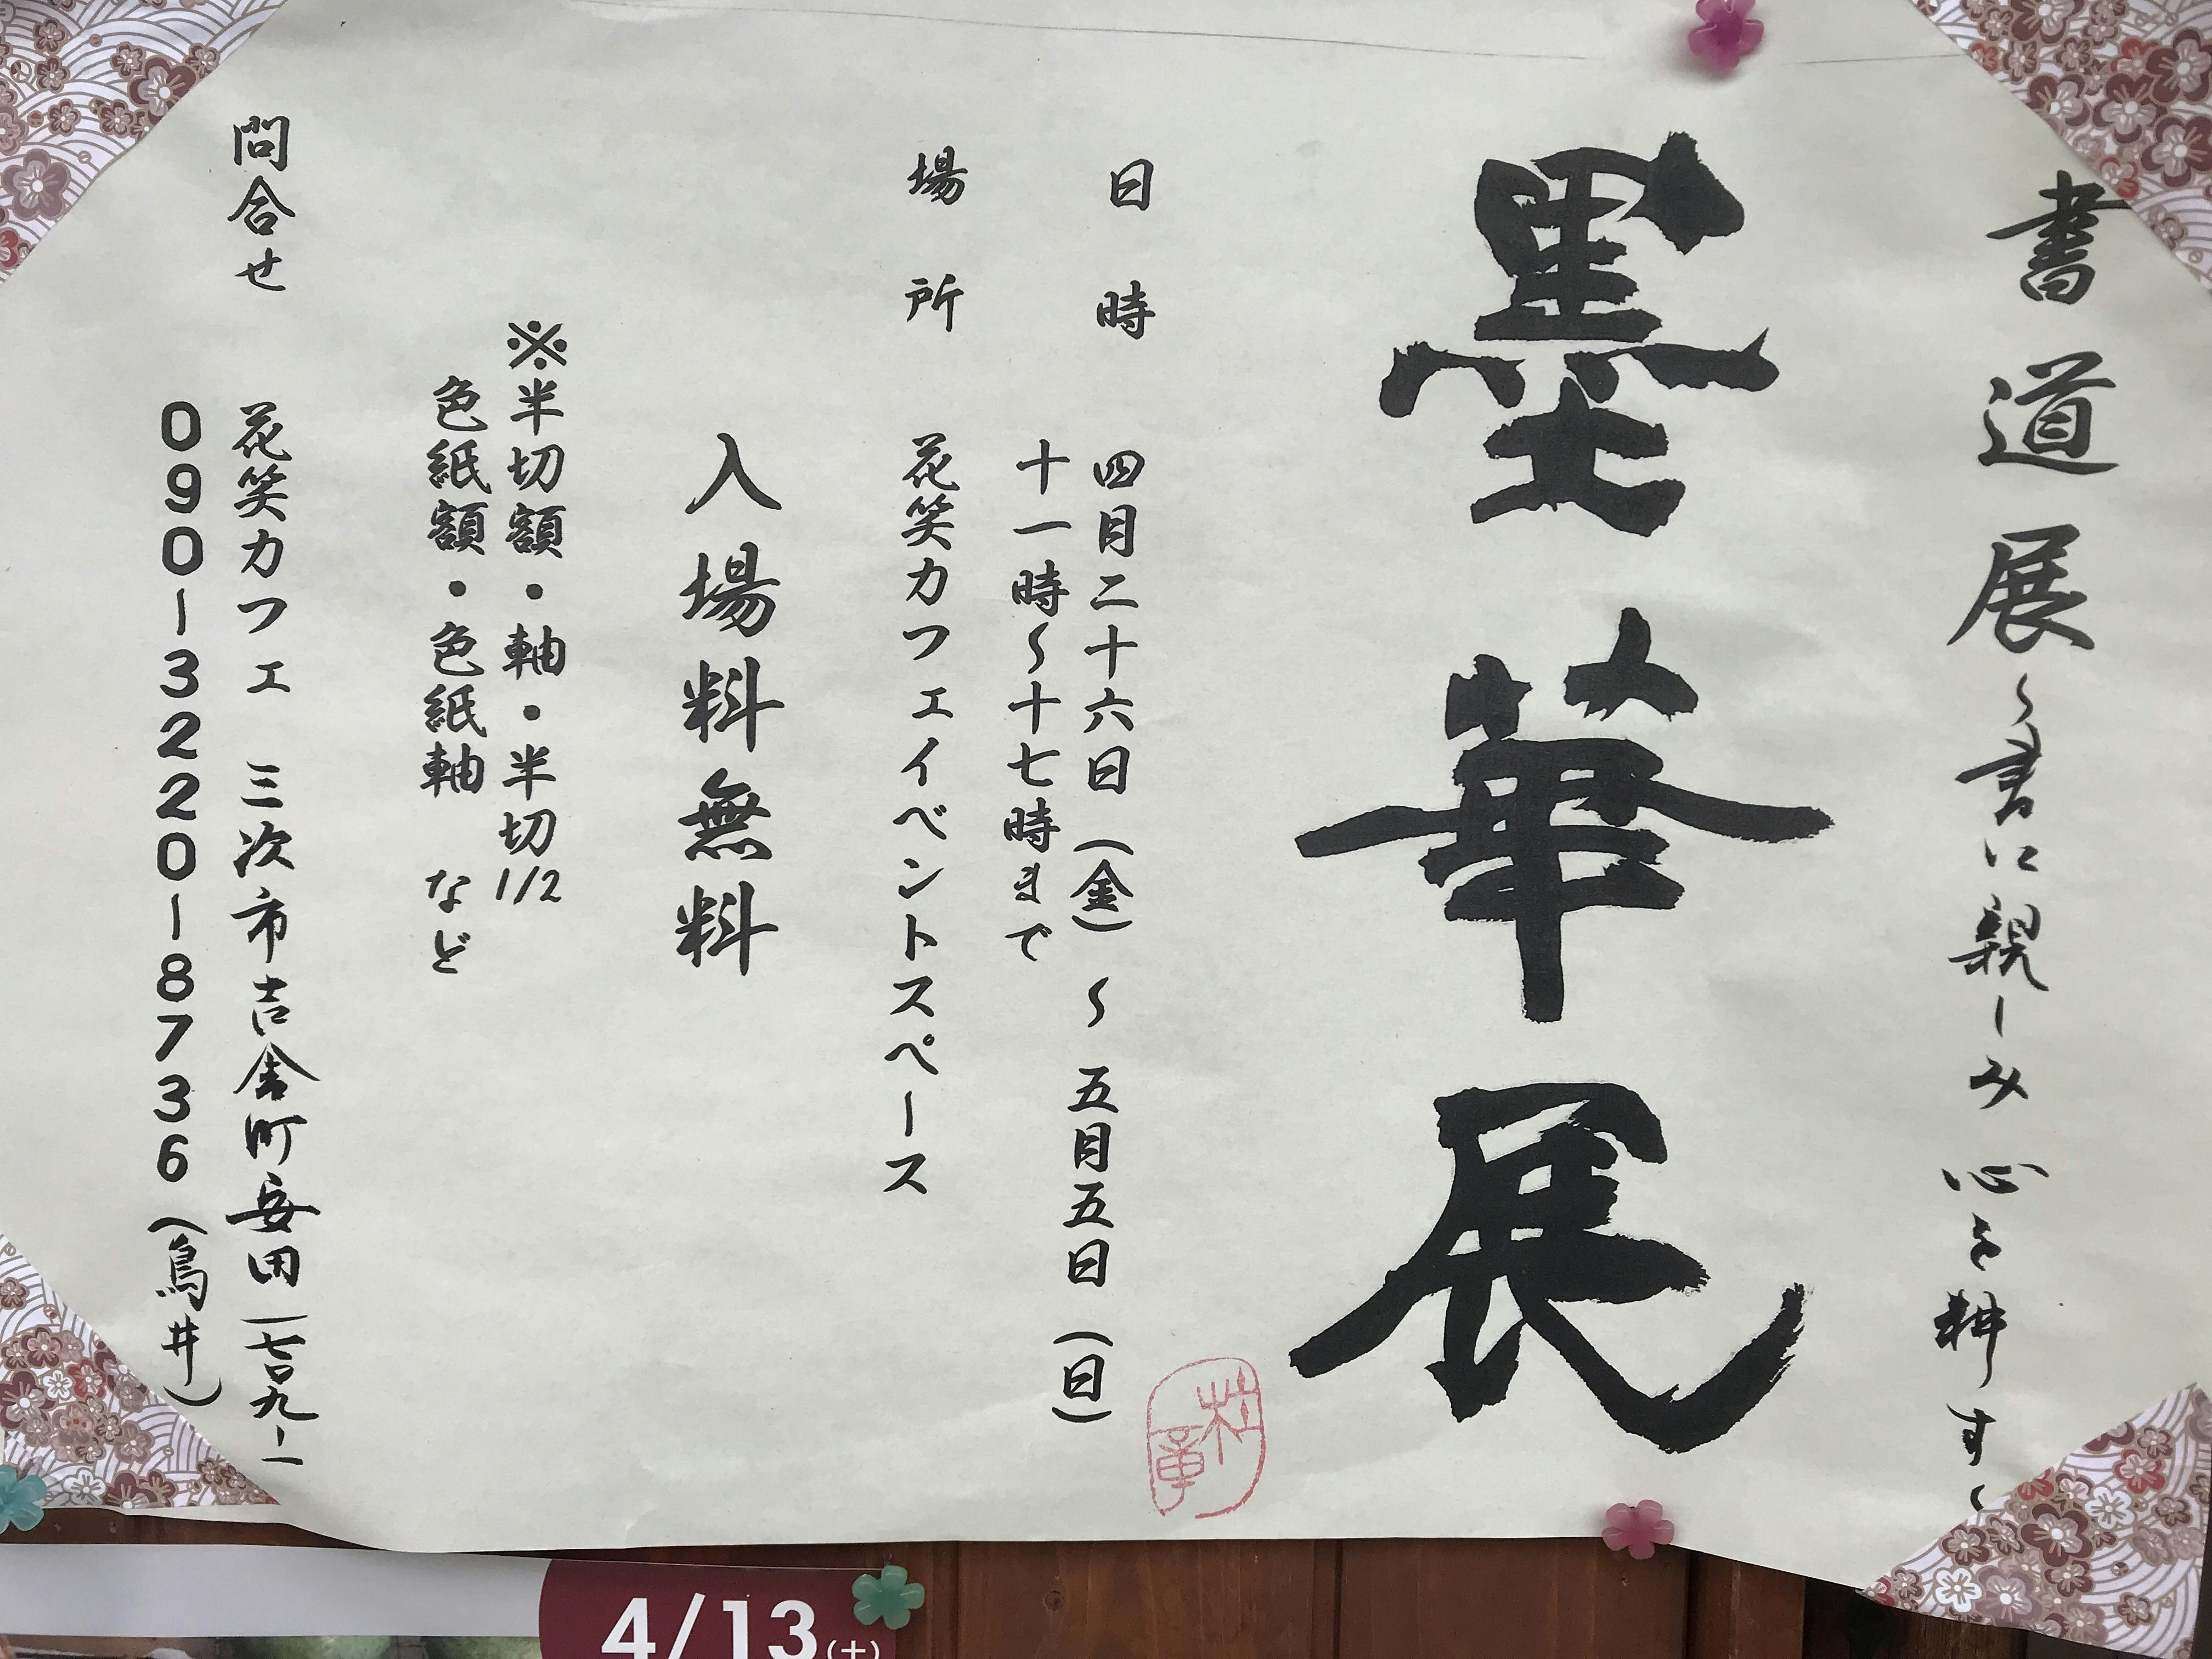 書道展〜書に親しみ心を耕す〜
墨華展
日時 四月二十六日（金）〜 五月五日（日）
十一時〜十七時まで
場所 花笑カフェイベントスペース
入場料無料
※半切額・軸・半切1/2
色紙額・色紙軸 など
問合せ 花笑カフェ 三次市吉舎町安田一七九-一
090-3220-8736（鳥井）
4/13(土)